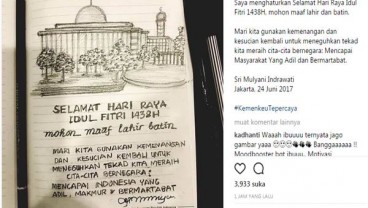 SELAMAT HARI RAYA
IDUL FITRI 1438H
mohon maaf lahir batin
MARI KITA GUNAKAN KEMENANGAN
DAN KESUCIAN KEMBALI UNTUK
MENEGUHKAN TEKAD KITA MERAIH
CITA-CITA BERNEGARA:
MENCAPAI INDONESIA YANG
ADIL, MAKMUR & BERMARTABAT
Saya menghaturkan Selamat Hari Raya Idul
Fitri 1438H. mohon maaf lahir dan batin.
Mari kita gunakan kemenangan dan
kesucian kembali untuk meneguhkan tekad
kita meraih cita-cita bernegara: Mencapai
Masyarakat Yang Adil dan Bermartabat.
Sri Mulyani Indrawati
Jakarta, 24 Juni 2017
#KemenkeuTepercaya
muat komentar lainnya
kadhanti Waaah ibuuuu ternyata jago
gambar yaaa
Banggaaaaaa !!
Moodbooster bgt ibuuu. Motivasi
3,933 suka
1 JAM YANG LALU